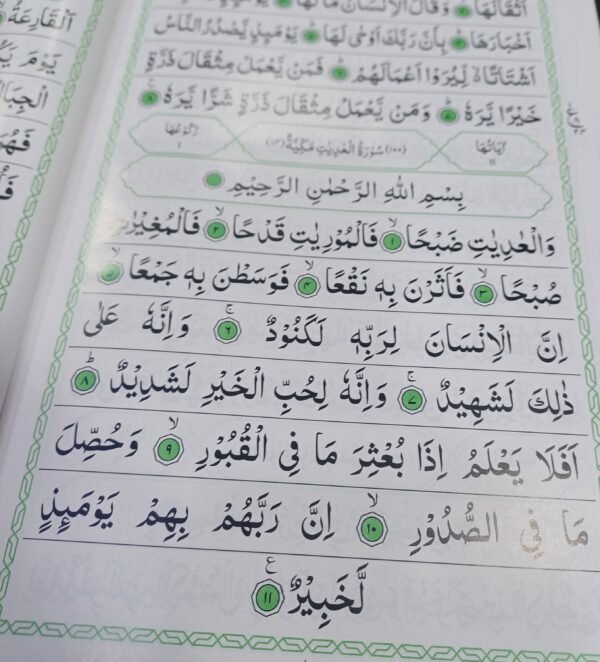 اَثْقَالَهَا ۝۲ وَقَالَ الْاِنْسَانُ مَا لَهَا
اَخْبَارَهَا ۝۴ بِاَنَّ رَبَّكَ اَوْحٰى لَهَا ۝۵ يَوْمَئِذٍ يَّصْدُرُ النَّاسُ
اَشْتَاتًا ۙ لِّيُرَوْا اَعْمَالَهُمْ ۝۶ فَمَنْ يَّعْمَلْ مِثْقَالَ ذَرَّةٍ
خَيْرًا يَّرَهٗ ۝۷ وَمَنْ يَّعْمَلْ مِثْقَالَ ذَرَّةٍ شَرًّا يَّرَهٗ ۝۸
اٰيَاتُهَا ۱۱ (۱۰۰) سُوْرَةُ الْعٰدِيٰتِ مَكِّيَّةٌ (۱۴) رُكُوْعُهَا ۱
بِسْمِ اللّٰهِ الرَّحْمٰنِ الرَّحِيْمِ
وَالْعٰدِيٰتِ ضَبْحًا ۙ۝۱ فَالْمُوْرِيٰتِ قَدْحًا ۙ۝۲ فَالْمُغِيْرٰتِ
صُبْحًا ۙ۝۳ فَاَثَرْنَ بِهٖ نَقْعًا ۙ۝۴ فَوَسَطْنَ بِهٖ جَمْعًا ۙ۝۵
اِنَّ الْاِنْسَانَ لِرَبِّهٖ لَكَنُوْدٌ ۚ۝۶ وَاِنَّهٗ عَلٰى
ذٰلِكَ لَشَهِيْدٌ ۚ۝۷ وَاِنَّهٗ لِحُبِّ الْخَيْرِ لَشَدِيْدٌ ؕ۝۸
اَفَلَا يَعْلَمُ اِذَا بُعْثِرَ مَا فِى الْقُبُوْرِ ۙ۝۹ وَحُصِّلَ
مَا فِى الصُّدُوْرِ ۙ۝۱۰ اِنَّ رَبَّهُمْ بِهِمْ يَوْمَئِذٍ
لَّخَبِيْرٌ ۝۱۱ ع
اَلْقَارِعَةُ
يَوْمَ
الْجِبَالُ